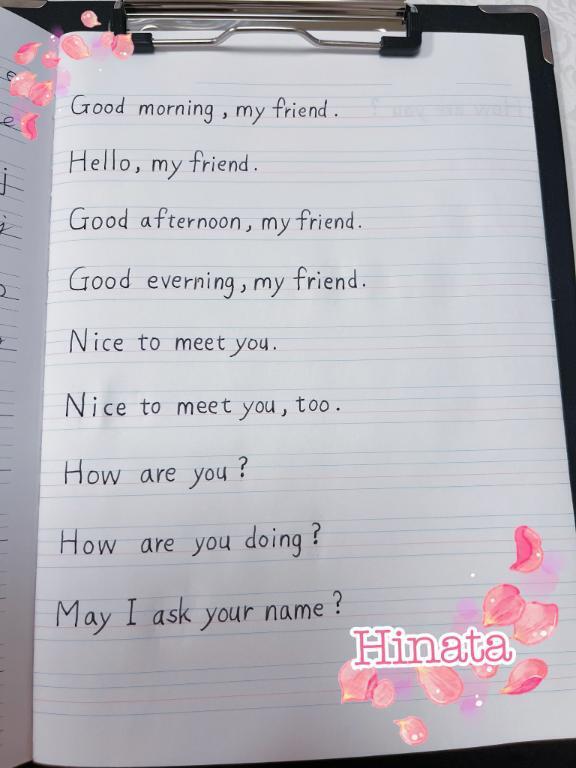 Good morning, my friend.
Hello, my friend.
Good afternoon, my friend.
Good everning, my friend.
Nice to meet you.
Nice to meet you, too.
How are you?
How are you doing?
May I ask your name?
Hinata